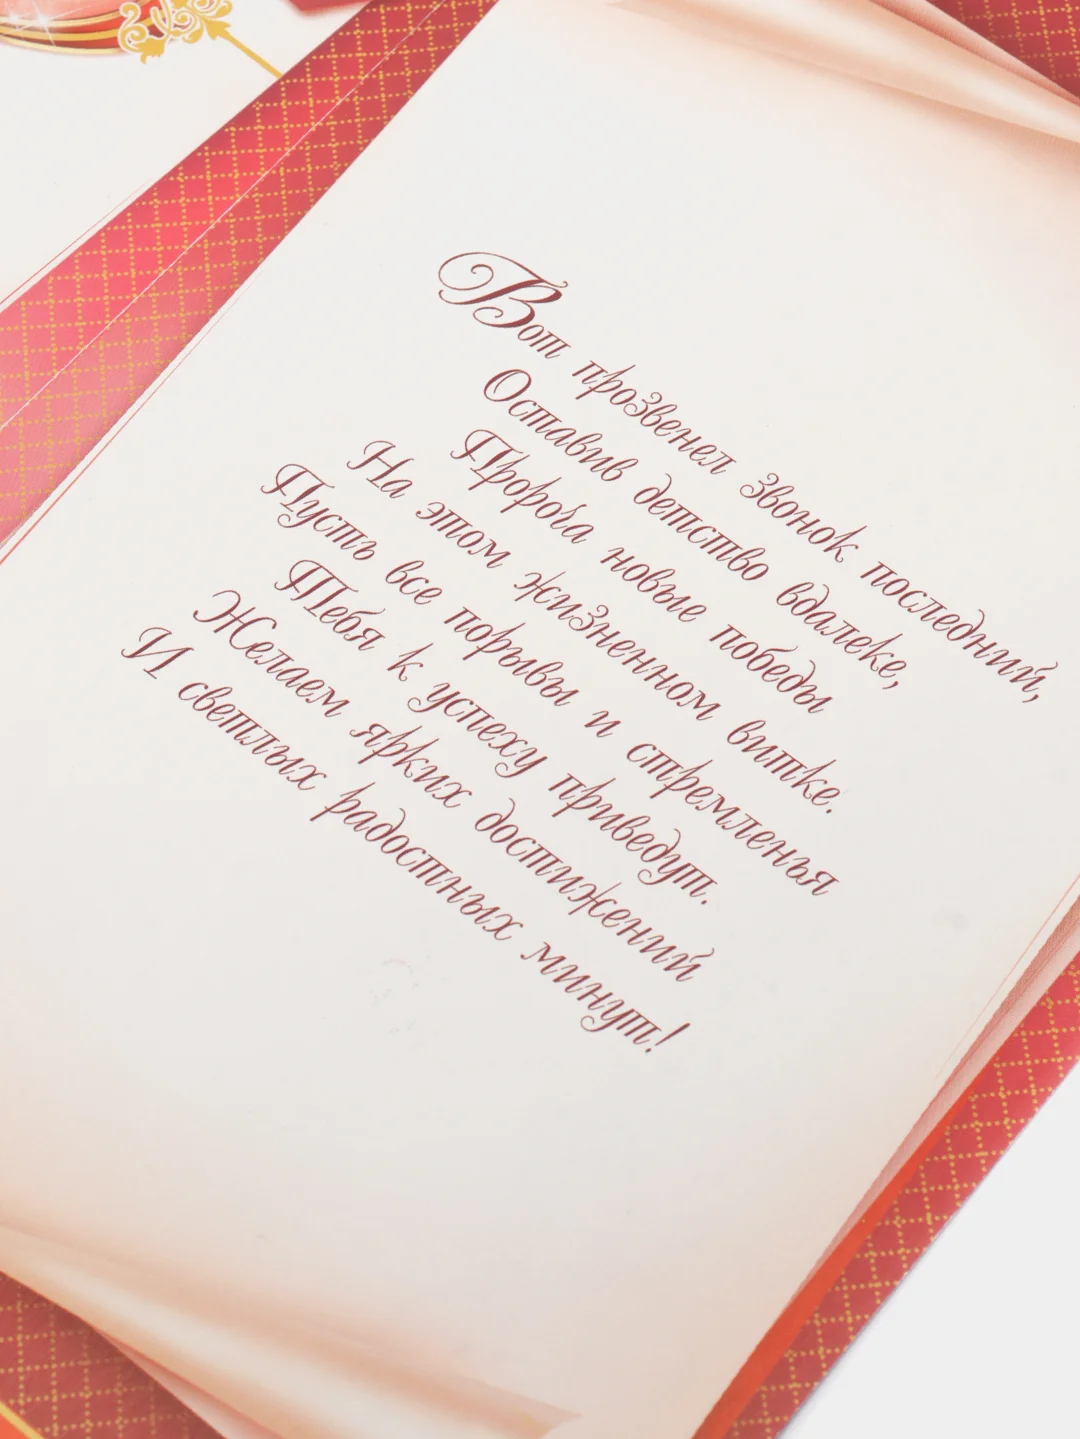 Вот прозвенел звонок последний,
Оставив детство вдалеке,
Пророча новые победы
На этом жизненном витке.
Пусть все порывы и стремленья
Тебя к успеху приведут.
Желаем ярких достижений
И светлых радостных минут!